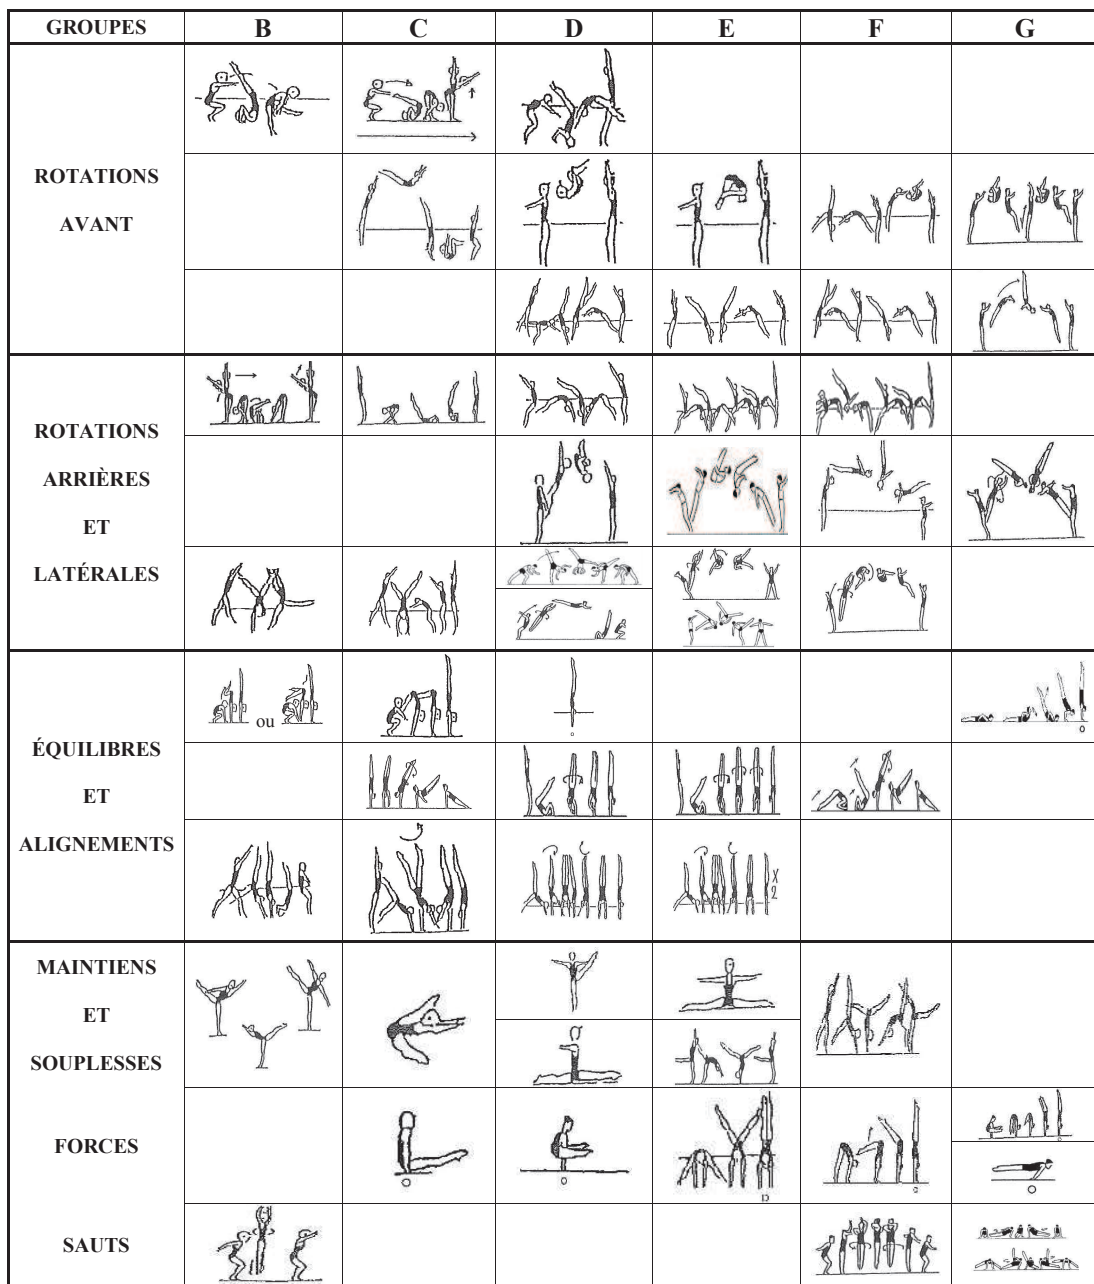 GROUPES B C D E F G
ROTATIONS
AVANT
ROTATIONS
ARRIÈRES
ET
LATÉRALES
ou
ÉQUILIBRES
ET
ALIGNEMENTS
X
2
MAINTIENS
ET
SOUPLESSES
FORCES
SAUTS